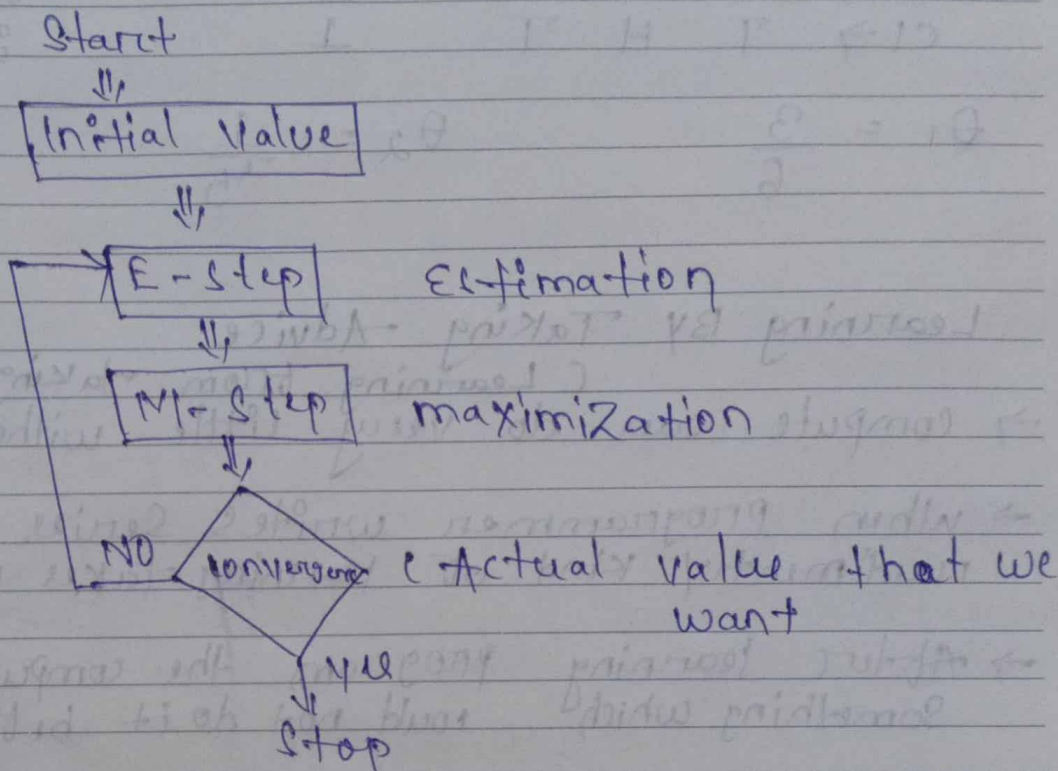 Start
Initial Value
E-Step Estimation
M-Step maximization
NO convergence (Actual value that we
want
yes
Stop